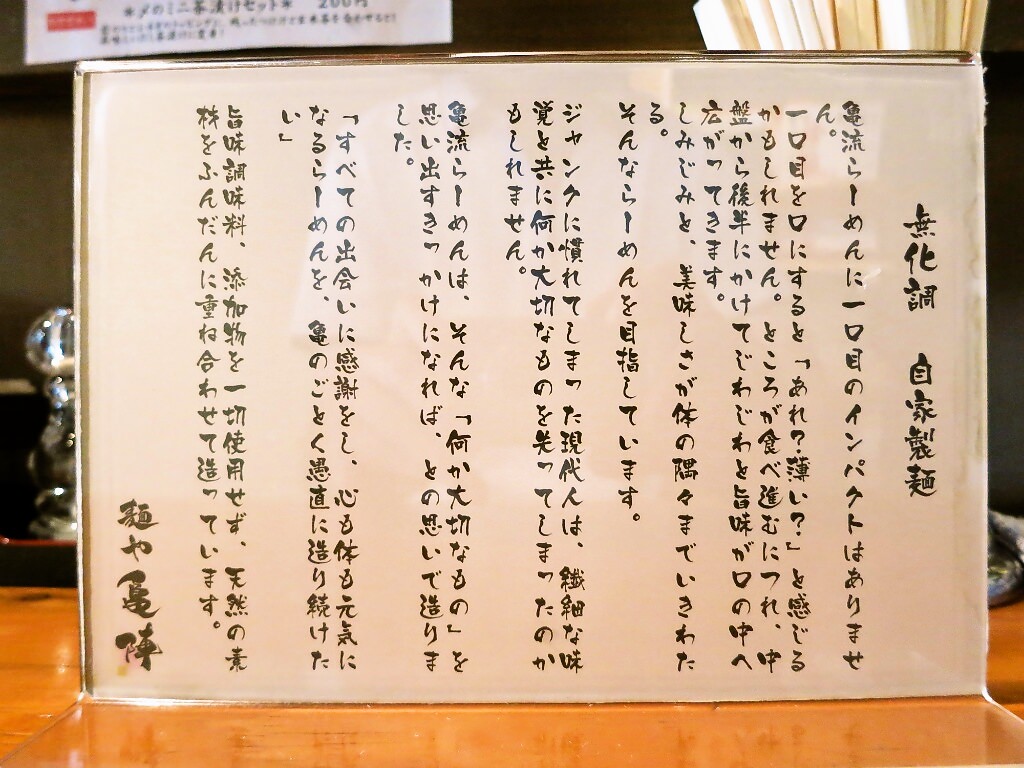 *〆のミニ茶漬けセット* 200円
無化調 自家製麺
亀流らーめんに一口目のインパクトはありませ
ん。
一口目を口にすると「あれ?薄い?」と感じる
かもしれません。ところが食べ進むにつれ、中
盤から後半にかけてじわじわと旨味が口の中へ
広がってきます。
しみじみと、美味しさが体の隅々までいきわた
る。
そんならーめんを目指しています。
ジャンクに慣れてしまった現代人は、繊細な味
覚と共に何か大切なものを失ってしまったのか
もしれません。
亀流らーめんは、そんな「何か大切なもの」を
思い出すきっかけになれば、との思いで造りま
した。
「すべての出会いに感謝をし、心も体も元気に
なるらーめんを、亀のごとく愚直に造り続けた
い」
旨味調味料、添加物を一切使用せず、天然の素
材をふんだんに重ね合わせて造っています。
麺や亀陣